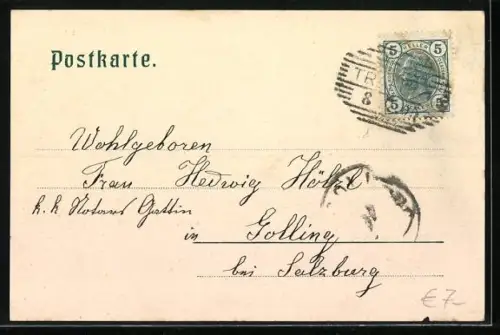 Postkarte.
5 HELLER 5
TR
8
5 5
Wohlgeboren
Frau Hedwig Hölzl
k. k. Notars Gattin
in Golling
bei Salzburg
€7-